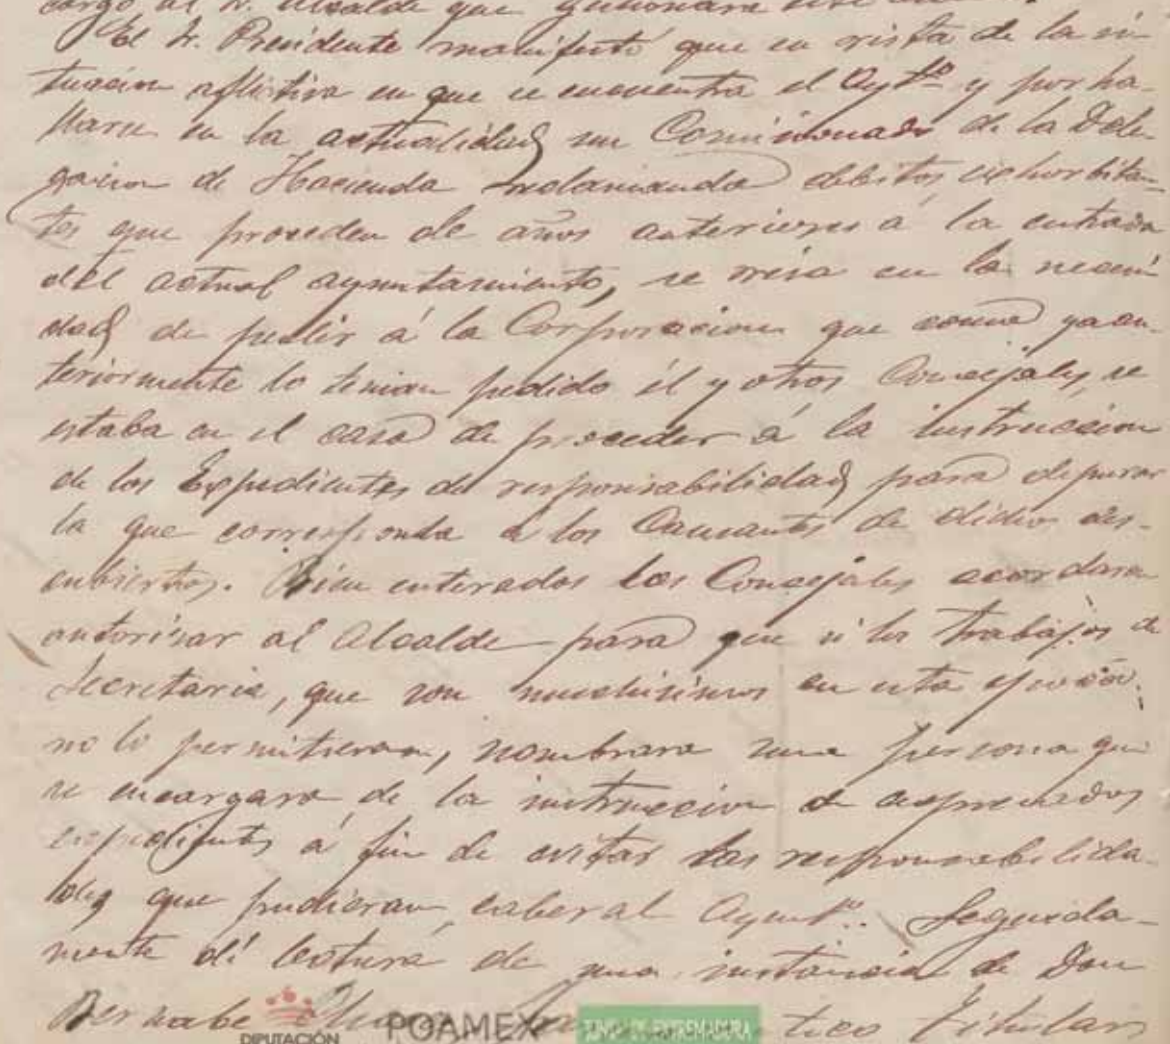 cargo al Sr. Alcalde que gestionara
El Sr. Presidente manifestó que en vista de la si-
tuacion aflictiva en que se encuentra el Aytº y por ha-
llarse en la actualidad un Comisionado de la Dele-
gacion de Hacienda reclamando debitos exhorbitan-
tes que proceden de años anteriores á la entrada
del actual ayuntamiento, se veia en la necesi
dad de pedir á la Corporacion que como ya an-
teriormente lo tenian pedido él y otros Concejales, se
estaba en el caso de proceder á la instruccion
de los Expedientes de responsabilidad para depurar
la que corresponda a los Causantes de dichos des-
cubiertos. Bien enterados los Concejales acordaron
autorizar al Alcalde para que si los trabajos de
Secretaria, que son muchisimos en esta época,
no lo permitieran, nombrara una persona que
se encargara de la instruccion de expresados
expedientes á fin de evitar las responsabilida-
des que pudieran caber al Ayuntº. Seguida-
mente dí lectura de una instancia de Don
Bernabe tico titular
DIPUTACIÓN
POAMEX
JUNTA DE EXTREMADURA